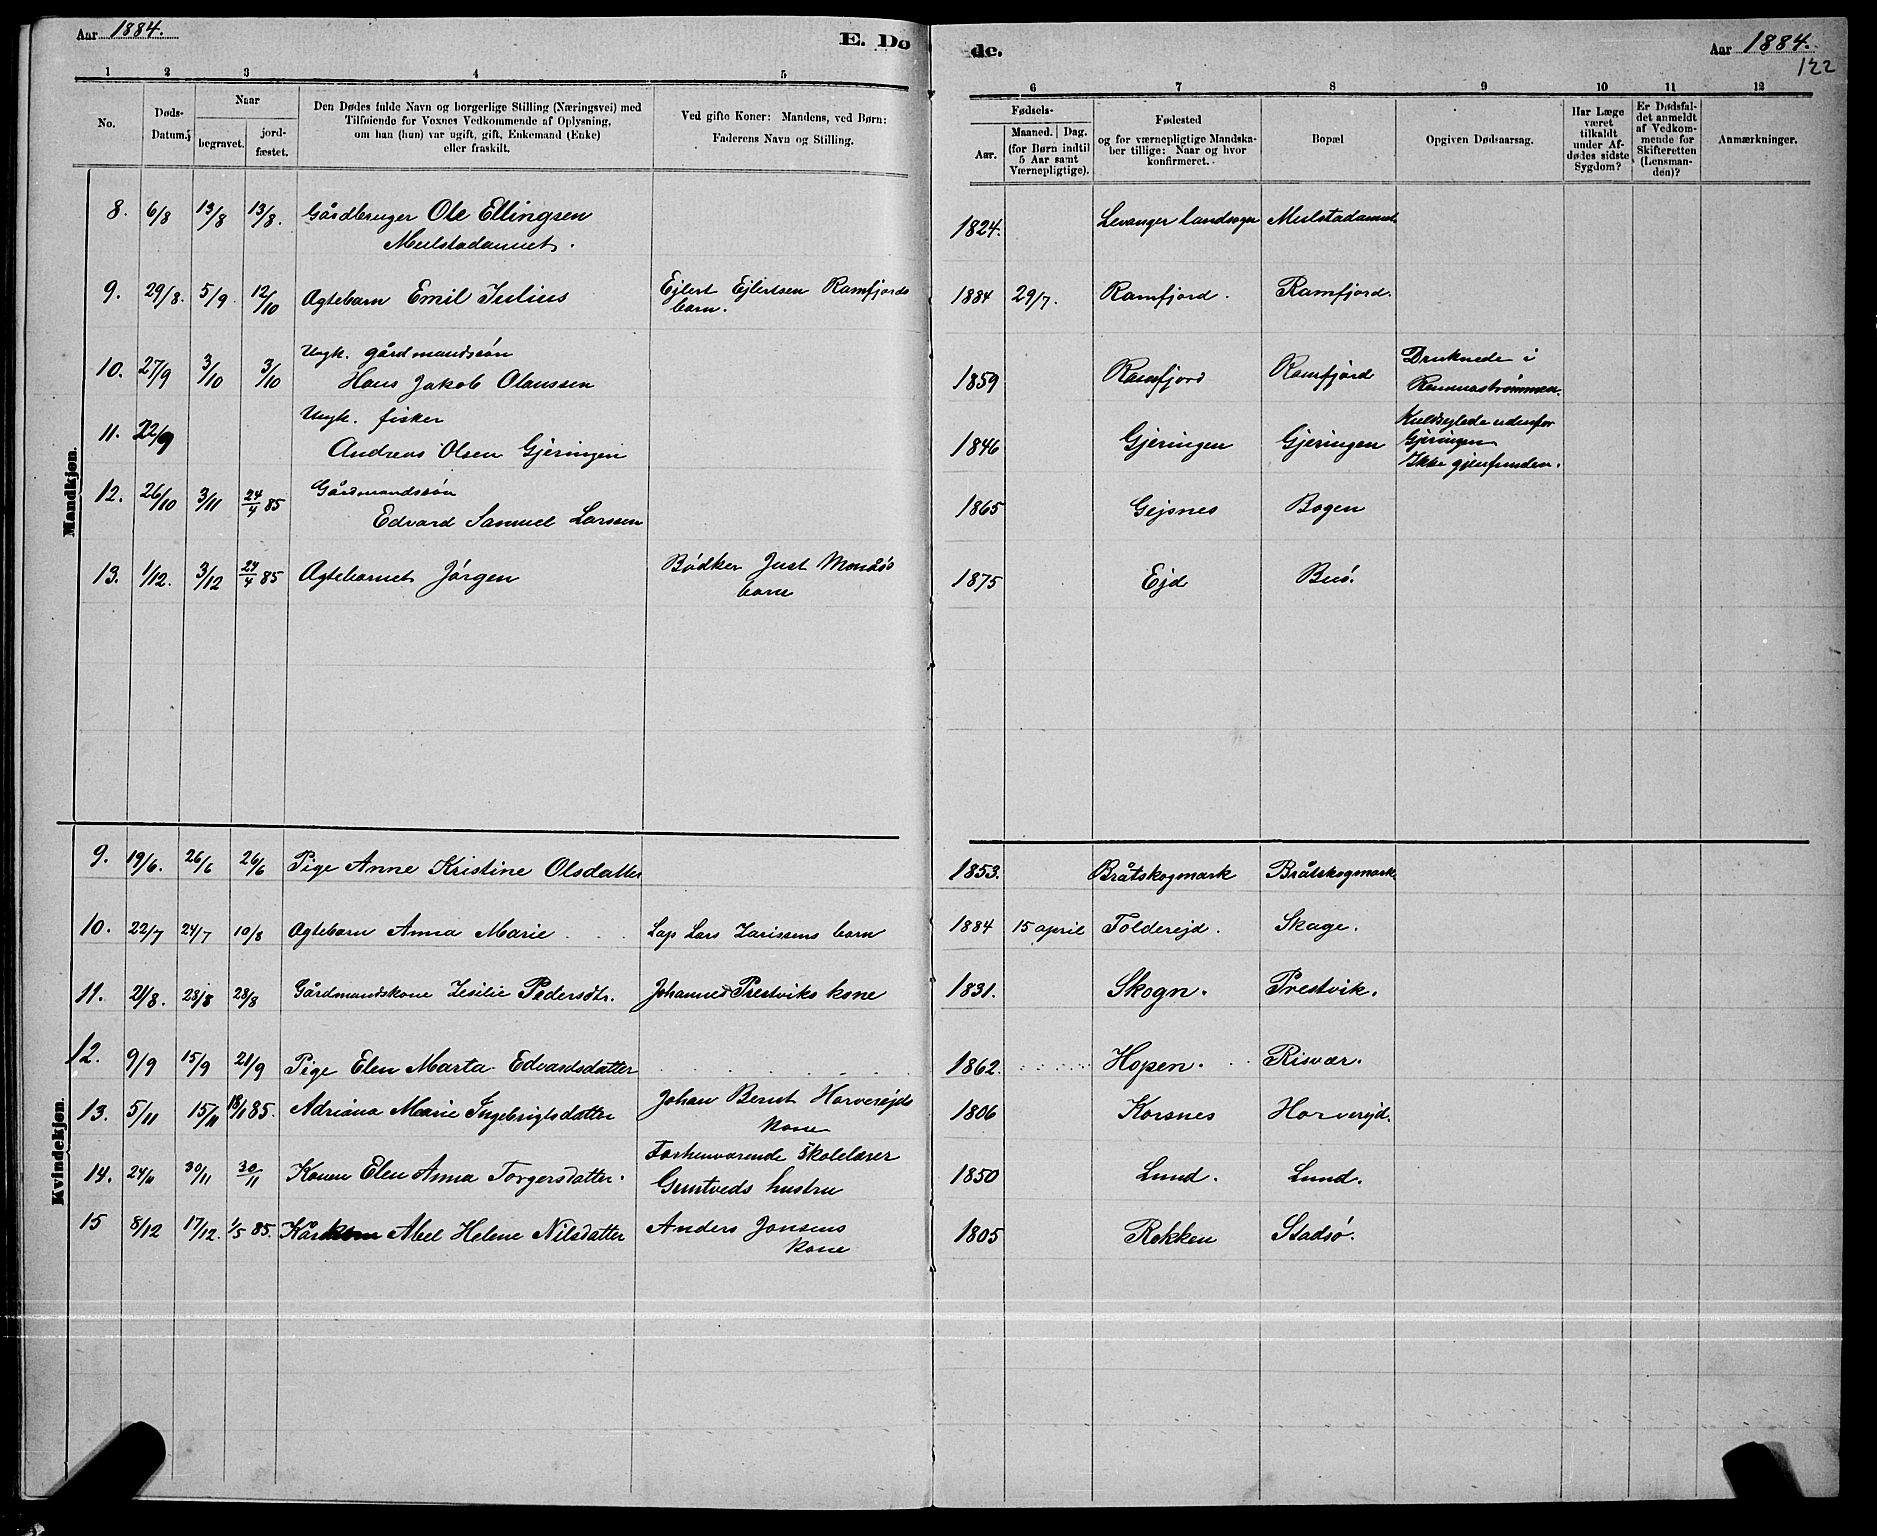 Aar 1884.
E. Dø
de.
Aar 1884.
122
1 2 3 4 5
6 7 8 9 10 11 12
No.
Døds-
Datum.
Naar
begravet.
jord-
fæstet.
Den Dødes fulde Navn og borgerlige Stilling (Næringsvei) med
Tilføiende for Voxnes Vedkommende af Oplysning,
om han (hun) var ugift, gift, Enkemand (Enke)
eller fraskilt.
Ved gifte Koner: Mandens, ved Børn:
Faderens Navn og Stilling.
Fødsels-
Aar.
Maaned. Dag.
(for Børn indtil
5 Aar samt
Værnepligtige).
Fødested
og for værnepligtige Mandska-
ber tillige: Naar og hvor
konfirmeret.
Bopæl
Opgiven Dødsaarsag.
Har Læge
været
tilkaldt
under Af-
dødes sidste
Sygdom?
Er Dødsfal-
det anmeldt
af Vedkom-
mende for
Skifteretten
(Lensman-
den)?
Anmærkninger.
Mandkjøn.
8. 6/8 13/8 13/8. Gårdbruger Ole Ellingsen 1824. Levanger landsogn Mulstadaunet
Mulstadaunet.
9. 29/8. 5/9. 12/10 Ægtebarn Emil Julius Ejlert Ejlertsen Ramfjords 1884 29/7. Ramfjord. Ramfjord.
barn.
10. 27/9 3/10 3/10 Ungk. gårdmandssön
Hans Jakob Olaussen 1859 Ramfjord Ramfjord Druknede i
Remmastrømmen.
11. 22/9 Ungk. fisker
Andreas Olsen Gjeringen 1846 Gjeringen Gjeringen Kuldsejlede udenfor
Gjeringen
Ikke gjenfunden.
12. 26/10 3/11 24/4 85 Gårdmandssön
Edvard Samuel Larssen 1865 Gejsnes Bogen
13. 1/12. 3/12 24/4 85 Ægtebarnet Jörgen Bödker Just 1875 Ejd Buö.
barn
Kvindekjøn.
9. 19/6. 26/6 26/6 Pige Anne Kristine Olsdatter 1853. Bråtskogmark Bråtskogmark.
10. 22/7 24/7 10/8 Ægtebarn Anna Marie Lap Lars Zarissens barn 1884 15 april Folderejd. Skage.
11. 21/8. 28/8 28/8 Gårdmandskone Zesilie Pedersdtr. Johannes Prestviks kone 1831. Skogn. Prestvik.
12. 9/9 15/9 21/9 Pige Elen Marta Edvardsdatter 1862. Hopen. Risvær.
13. 5/11 15/11 18/1 85. Adriana Marie Ingebrigtsdatter Johan Bernt Horverejds 1806 Korsnes Horverejd.
kone
14. 24/11 30/11 30/11 Konen Elen Anna Torgersdatter. Forhenværende Skolelærer 1850 Lund. Lund.
Gruntveds hustru
15 8/12 17/12. 1/5 85. Abel Helene Nilsdatter Anders Jonsens 1805 Rokken Stadsö.
kone